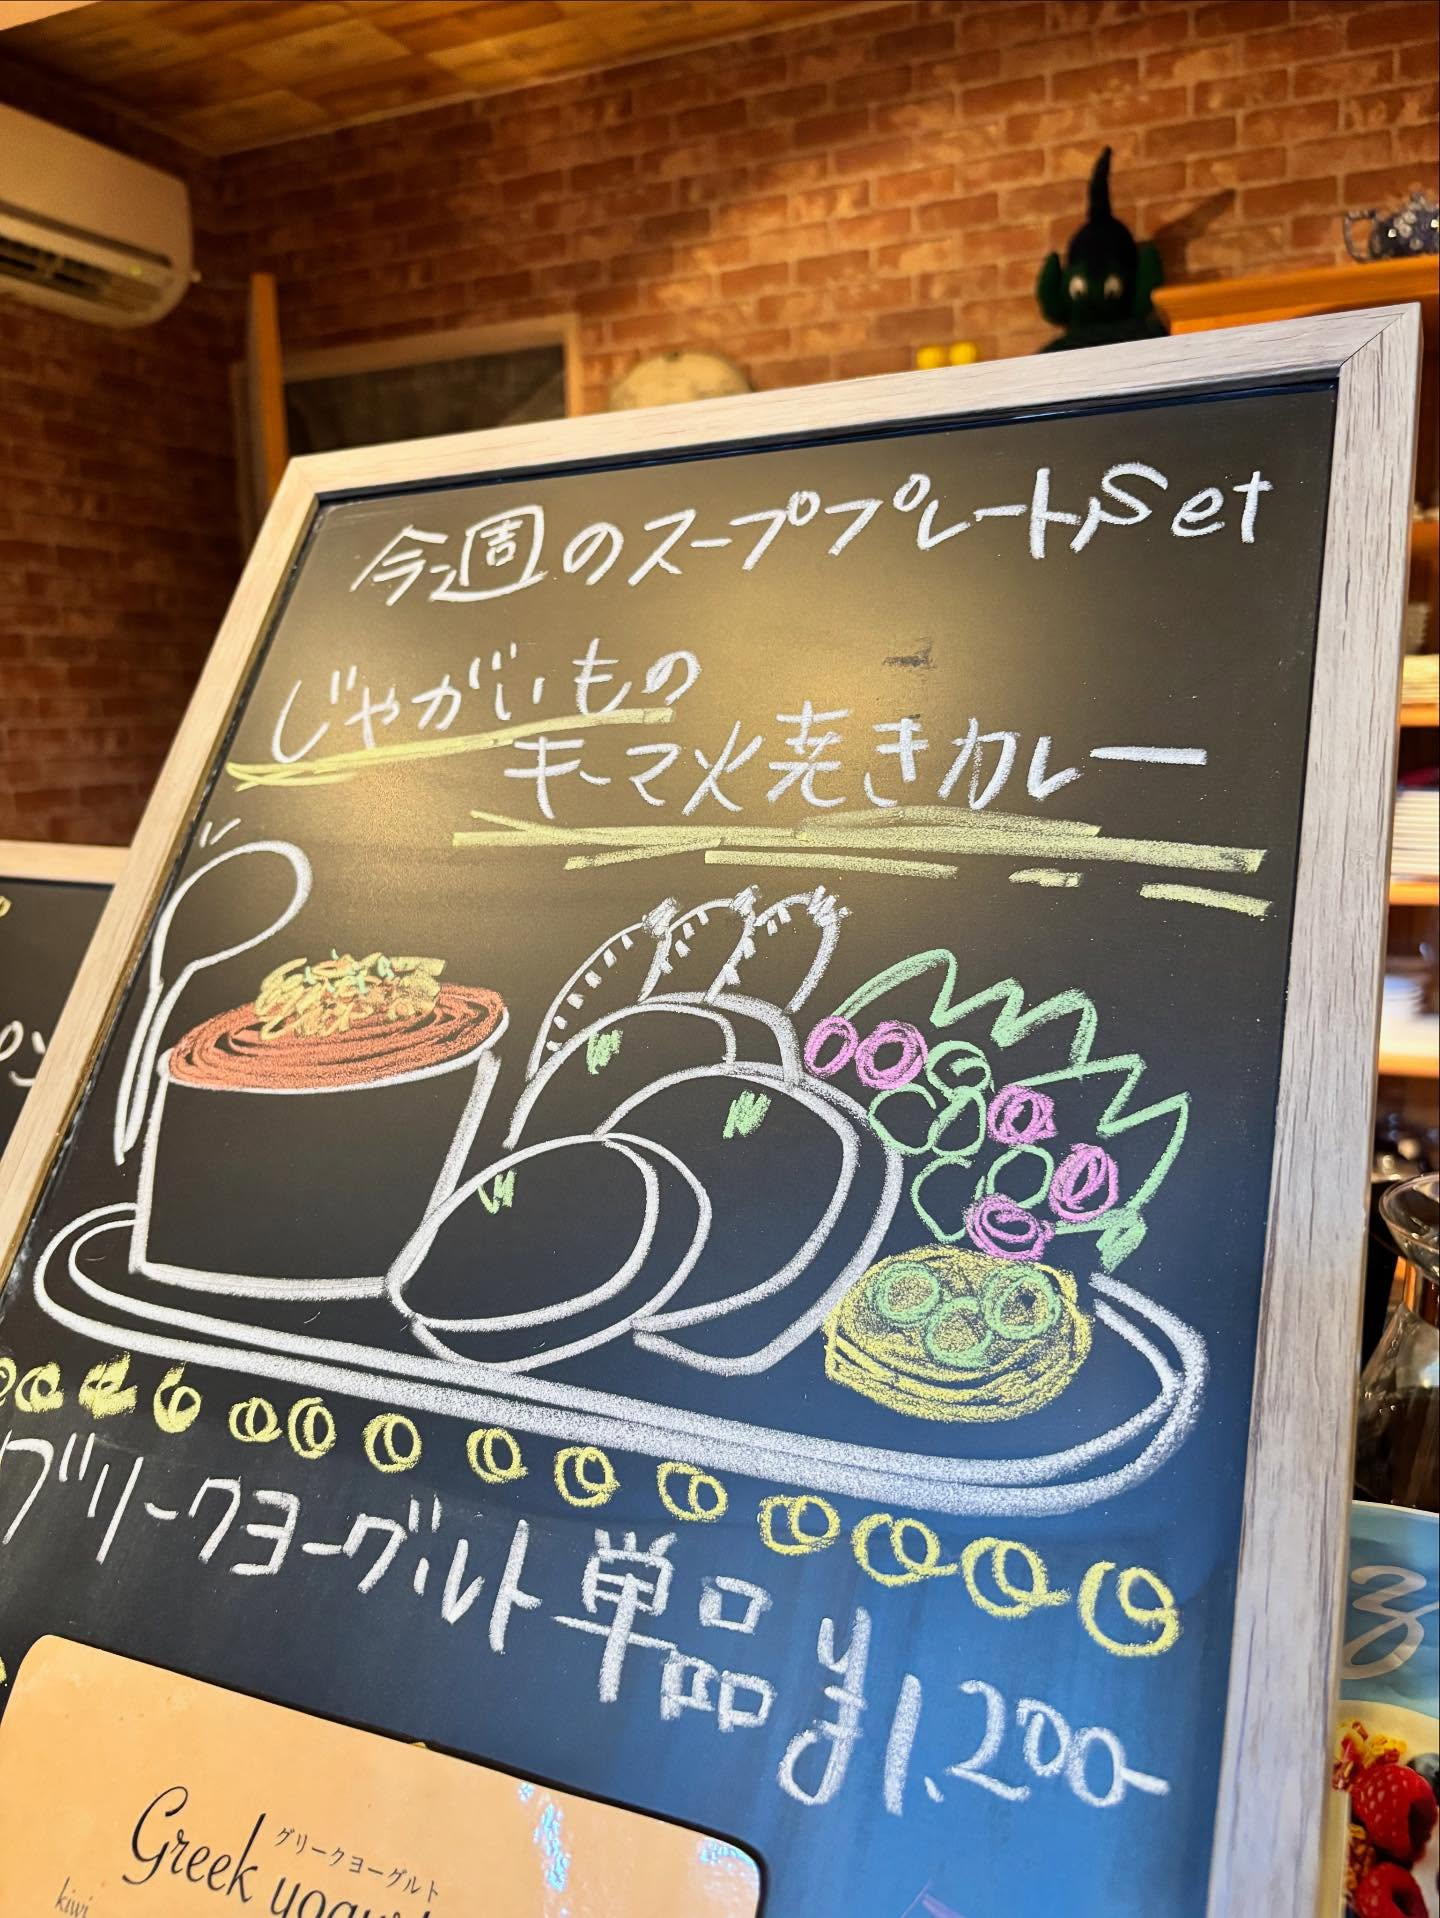 今週のスーププレートSet
じゃがいもの
キーマ火焼きカレー
グリークヨーグルト単品 ¥1,200-
グリークヨーグルト
Greek
kiwi